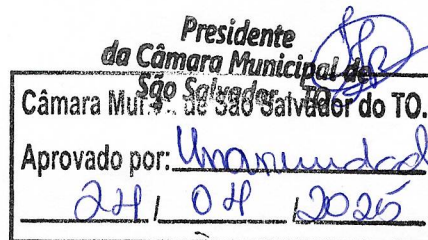 Presidente
da Câmara Municipal de
São Salvador - TO
Câmara Mun. de São Salvador do TO.
Aprovado por: Unanimidad
24 / 04 / 2025